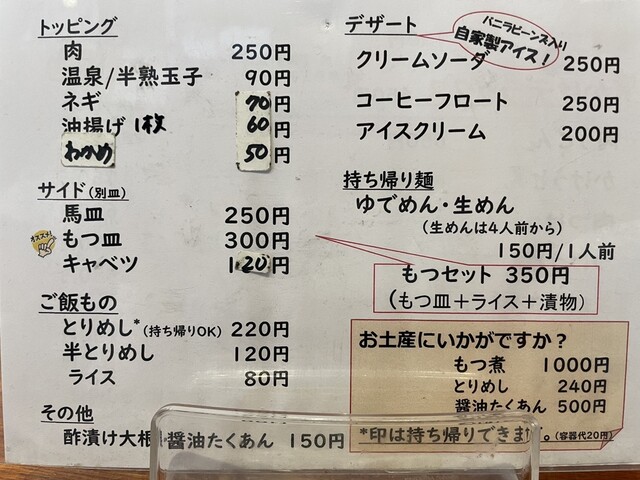 トッピング
肉 250円
温泉/半熟玉子 90円
ネギ 70円
油揚げ 1枚 60円
わかめ 50円
サイド(別皿)
馬皿 250円
オススメ! もつ皿 300円
キャベツ 120円
ご飯もの
とりめし*(持ち帰りOK) 220円
半とりめし 120円
ライス 80円
その他
酢漬け大根 醤油たくあん 150円
デザート
バニラビーンズ入り
自家製アイス!
クリームソーダ 250円
コーヒーフロート 250円
アイスクリーム 200円
持ち帰り麺
ゆでめん・生めん
(生めんは4人前から)
150円/1人前
もつセット 350円
(もつ皿+ライス+漬物)
お土産にいかがですか?
もつ煮 1000円
とりめし 240円
醤油たくあん 500円
*印は持ち帰りできます。(容器代20円)